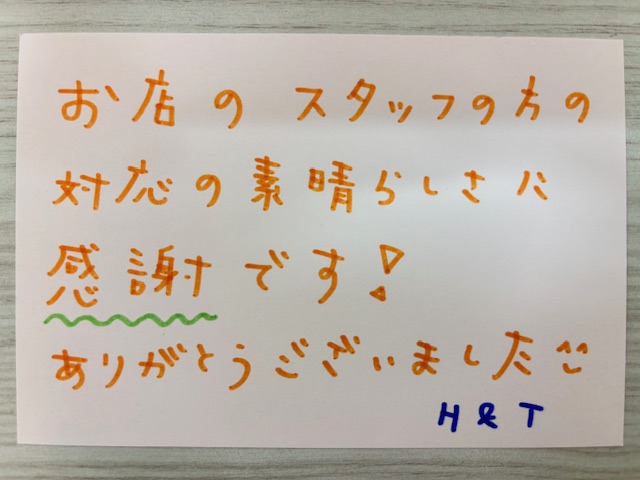 お店のスタッフの方の
対応の素晴らしさに
感謝です!
ありがとうございました^^
H & T